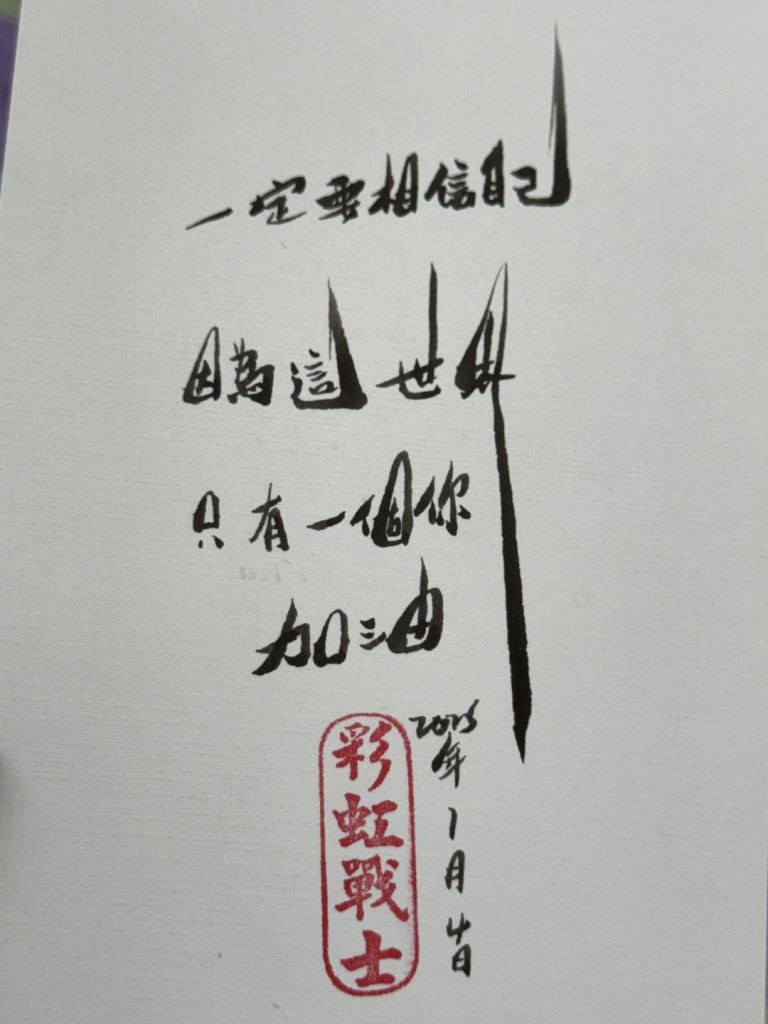 一定要相信自己
因為這世界
只有一個你
加油
2025年1月4日
彩虹戰士